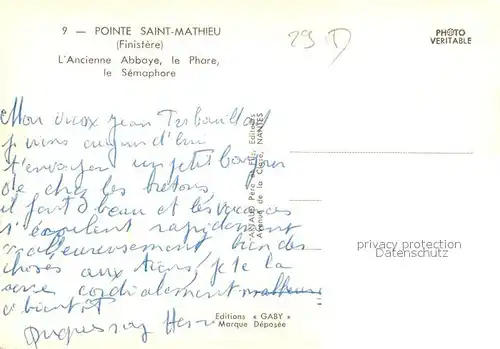 9 — POINTE SAINT-MATHIEU
(Finistère)
L'Ancienne Abbaye, le Phare,
le Sémaphore
PHOTO
VERITABLE
29 D
Mon vieux Jean
je viens aujourd'hui
t'envoyer un petit bonjour
de chez les bretons,
il fait beau et les vacances
s'écoulent rapidement
malheureusement bien des
choses aux tiens, je te la
serre cordialement malheureu
a bientôt
ARTAUD Père & Fils, Editeurs
Avenue de la Close, NANTES
privacy protection
Datenschutz
Editions « GABY »
Marque Déposée